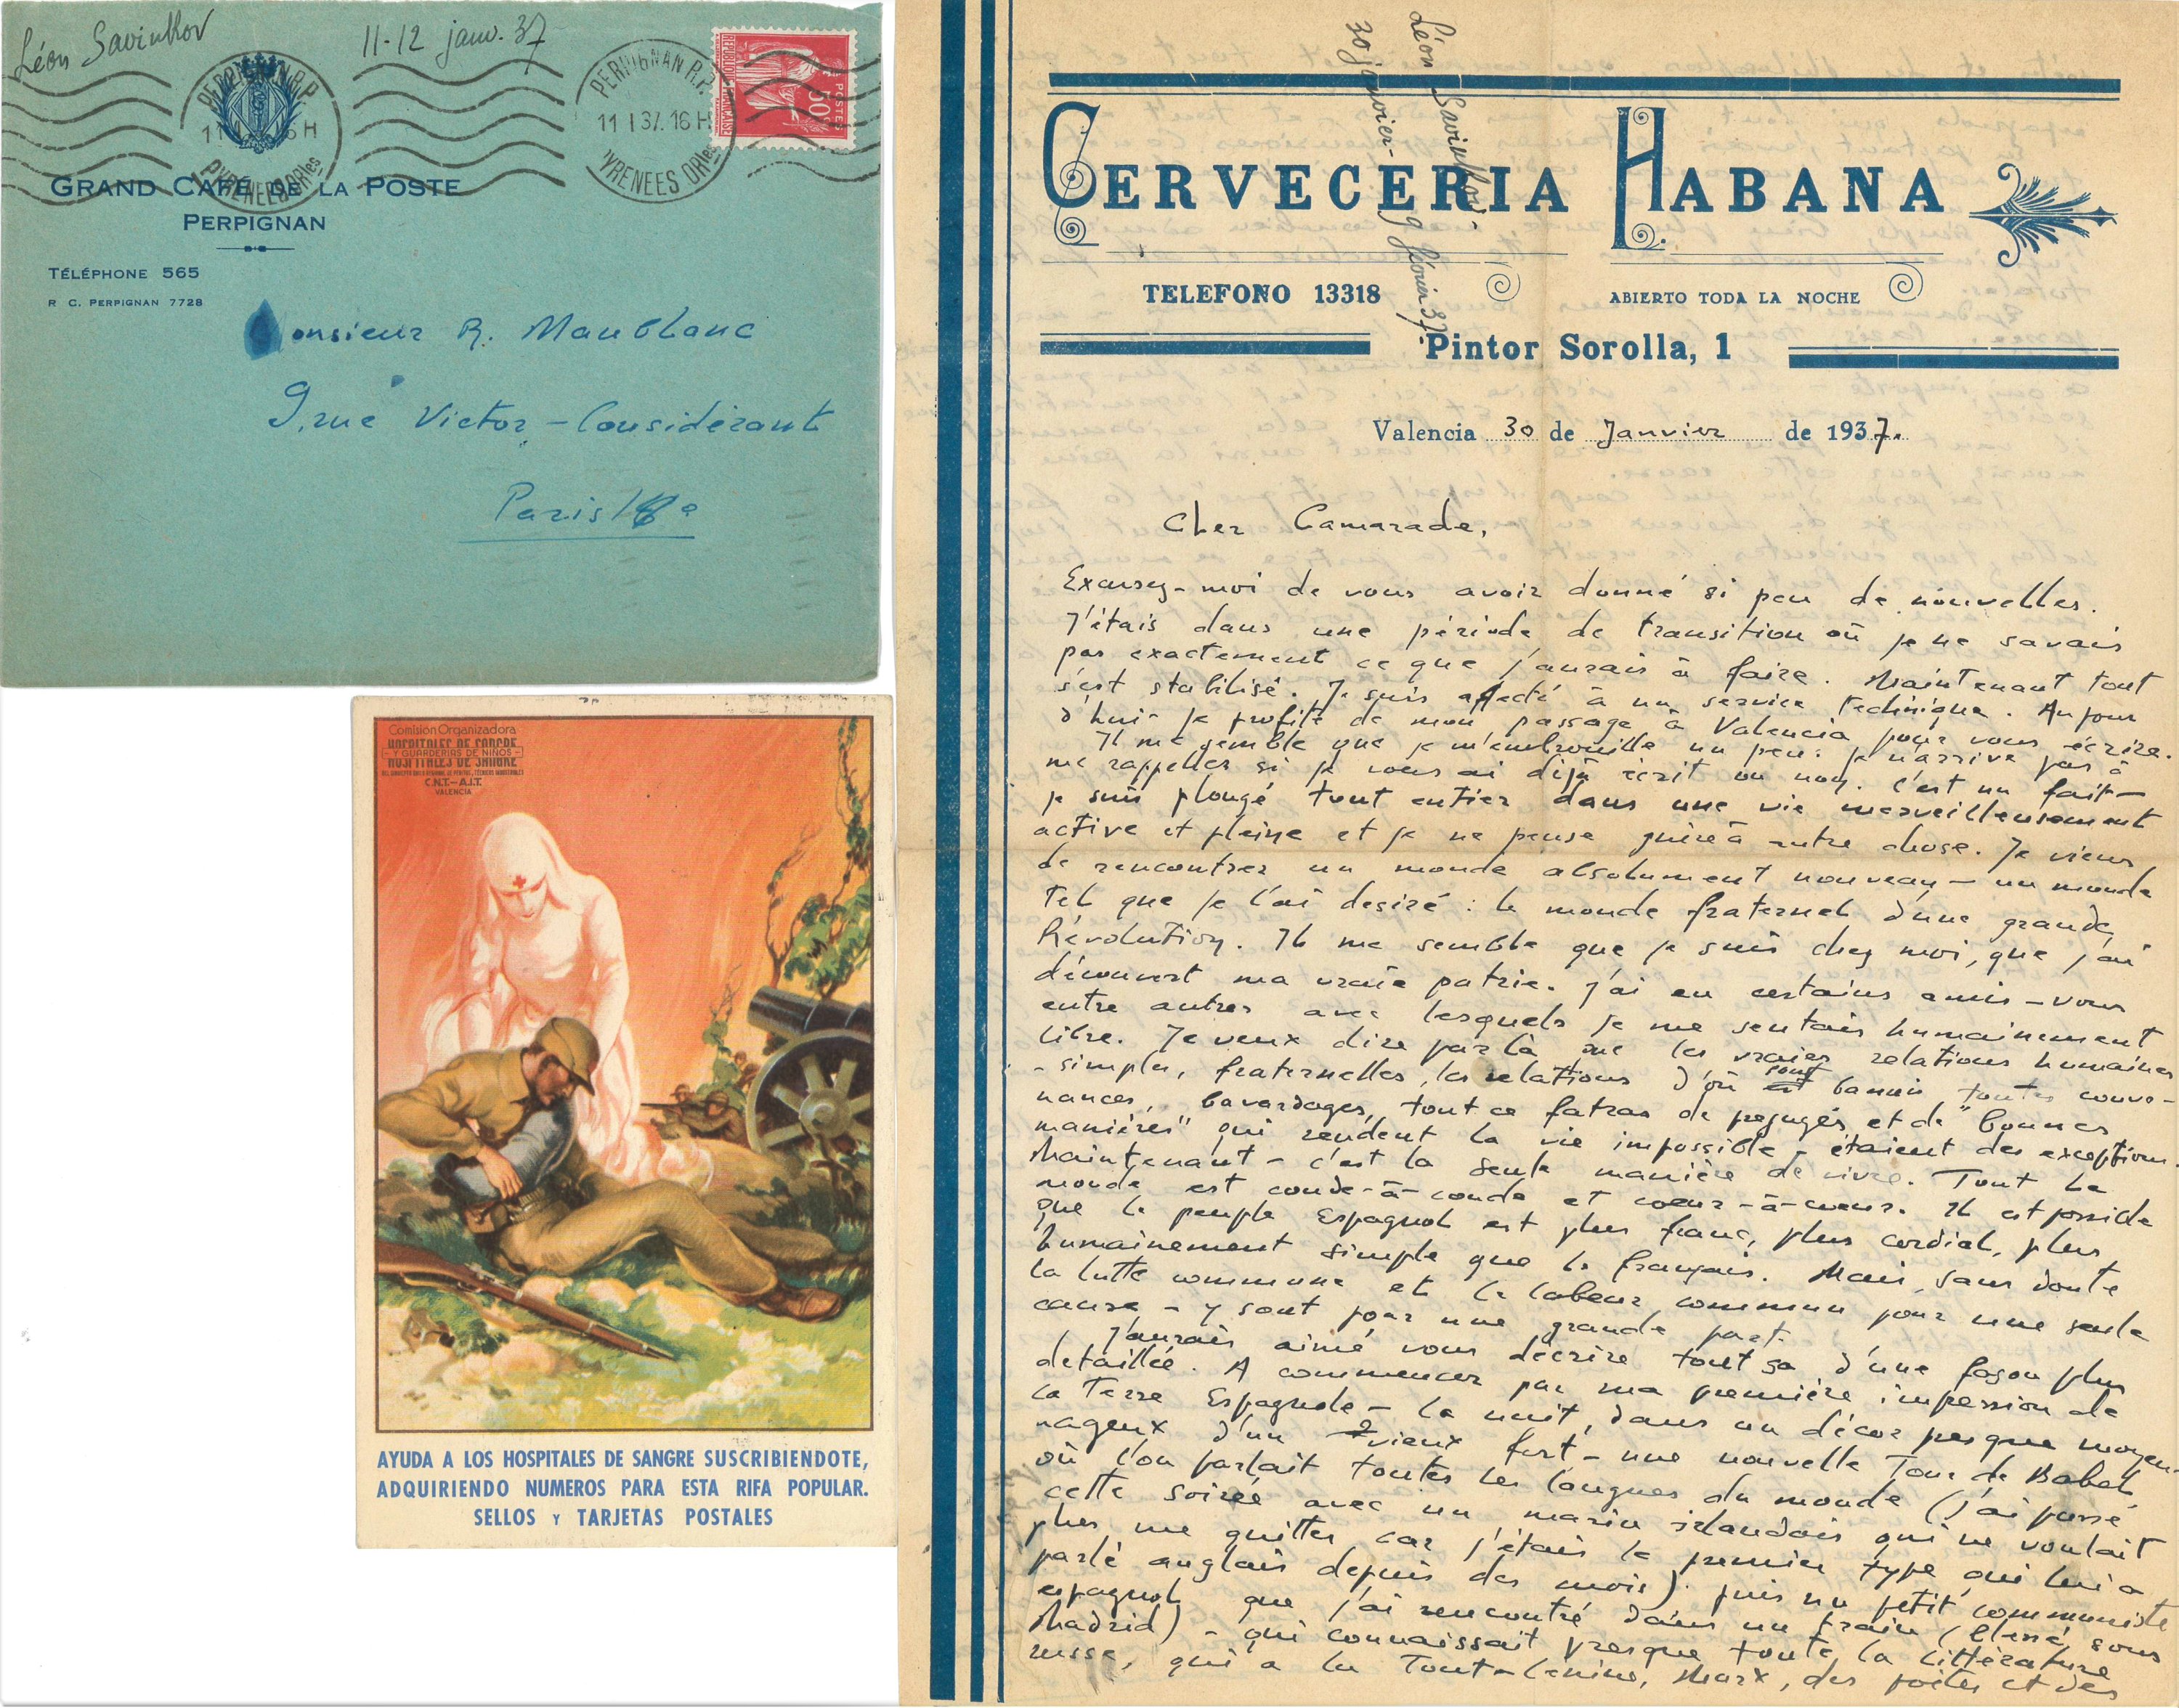 Léon Savinkov
11-12 janv. 37
PERPIGNAN R.P.
PYRENEES ORles
PERPIGNAN R.P.
11 I 37. 16 H
PYRENEES ORles
REPUBLIQUE FRANÇAISE
POSTES
50c
GRAND CAFÉ DE LA POSTE
PERPIGNAN
TÉLÉPHONE 565
R C. PERPIGNAN 7728
Monsieur R. Maublanc
9, rue Victor-Considérant
Paris
Comisión Organizadora
HOSPITALES DE SANGRE
- Y GUARDERIAS DE NIÑOS -
HOSPITALES DE SANGRE
C.N.T.-A.I.T.
VALENCIA
AYUDA A LOS HOSPITALES DE SANGRE SUSCRIBIENDOTE,
ADQUIRIENDO NUMEROS PARA ESTA RIFA POPULAR.
SELLOS Y TARJETAS POSTALES
Léon Savinkov-
30 janvier - 9 février 37.
CERVECERIA HABANA
TELEFONO 13318
ABIERTO TODA LA NOCHE
Pintor Sorolla, 1
Valencia 30 de Janvier de 1937.
Cher Camarade,
Excusez-moi de vous avoir donné si peu de nouvelles.
J'étais dans une période de transition où je ne savais
pas exactement ce que j'aurais à faire. Maintenant tout
s'est stabilisé. Je suis affecté à un service technique. Aujour
d'hui je profite de mon passage à Valencia pour vous écrire.
Il me semble que je m'embrouille un peu: je n'arrive pas à
me rappeler si je vous ai déjà écrit ou non. C'est un fait-
je suis plongé tout entier dans une vie merveilleusement
active et pleine et je ne pense guère à autre chose. Je viens
de rencontrer un monde absolument nouveau - un monde
tel que je l'ai desiré: le monde fraternel d'une grande
Révolution. Il me semble que je suis chez moi, que j'ai
découvert ma vraie patrie. J'ai eu certains amis - vous
entre autres avec lesquels je me sentais humainement
libre. Je veux dire par là que les vraies relations humaines
- simples, fraternelles, les relations d'où sont bannis toutes conve-
nances, bavardages, tout ce fatras de prejugés et de "bonnes
manières" qui rendent la vie impossible - étaient des exceptions.
Maintenant - c'est la seule manière de vivre. Tout le
monde est coude-à-coude et coeur-à-coeur. Il est possible
que le peuple Espagnol est plus franc, plus cordial, plus
humainement simple que le français. Mais, sans doute
la lutte commune et le labeur commun pour une seule
cause - y sont pour une grande part.
J'aurais aimé vous décrire tout ça d'une façon plus
detaillée. A commencer par ma première impression de
la Terre Espagnole - la nuit, dans un décor presque moyen-
nageux d'un vieux fort - une nouvelle Tour de Babel
où l'on parlait toutes les langues du monde (j'ai passé
cette soirée avec un marin irlandais qui ne voulait
plus me quitter car j'étais le premier type qui lui a
parlé anglais depuis des mois). Puis un petit communiste
espagnol que j'ai rencontré dans un train (blessé sous
Madrid) - qui connaissait presque toute la littérature
russe, qui a lu Tout-Lénine, Marx, des poètes et des